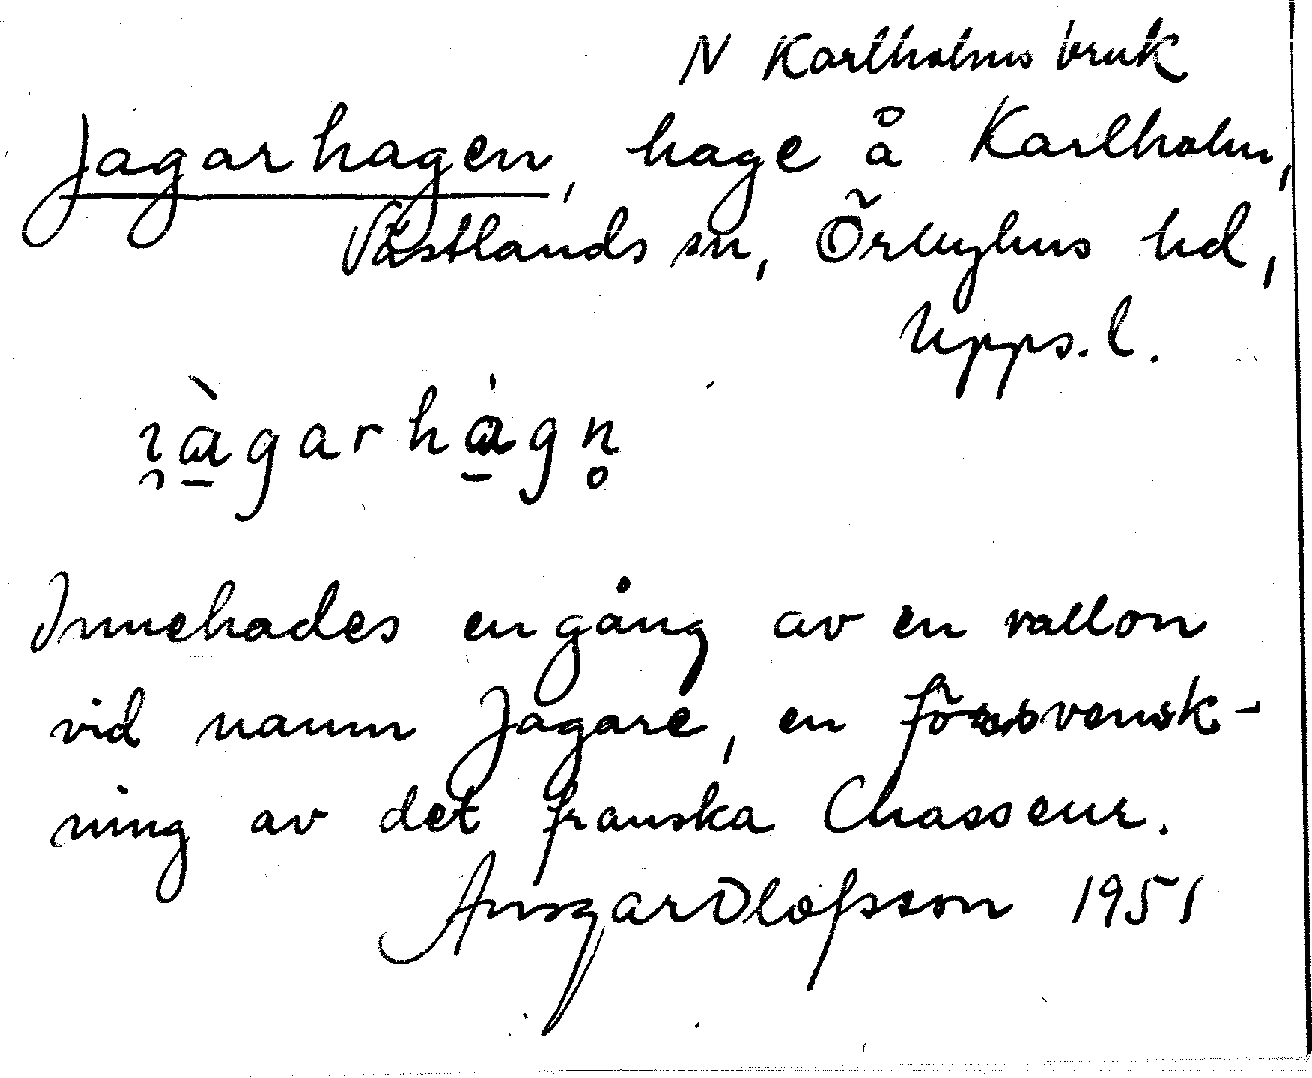 N Karlholms bruk
Jagarhagen, hage å Karlholm,
Västlands sn, Örbyhus hd,
Upps. l.
ɿ̯à̱garhà̱gn̥
Innehades en gång av en vallon
vid namn Jagare, en försvensk-
ning av det franska Chasseur.
Ansgar Olofsson 1951